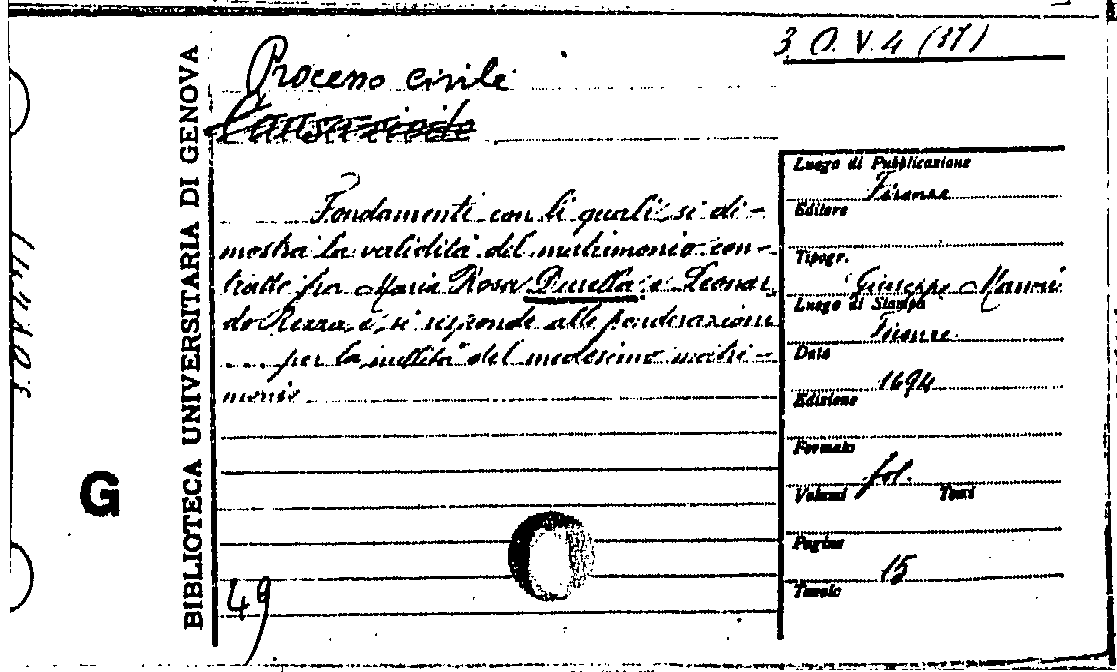 3 O. V. 4 (37)
Processo civile
Causa civile
Fondamenti con li quali si di-
mostra la validità del matrimonio con-
tratto fra Maria Rosa Durella e Leonar
do Rezza, e, si risponde alle ponderazioni
per la nullità del medesimo matri-
monio
49
BIBLIOTECA UNIVERSITARIA DI GENOVA
G
Luogo di Pubblicazione
Firenze
Editore
Tipogr.
Giuseppe Manni
Luogo di Stampa
Firenze
Data
1694
Edizione
Formato
fol.
Volumi Tomi
Pagine
15
Tavole